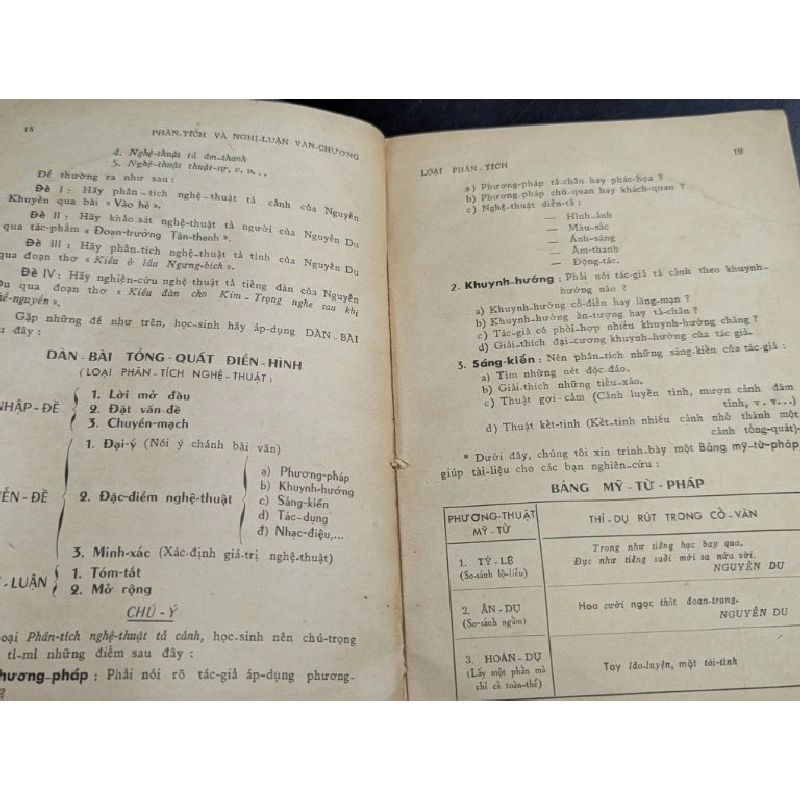 18
PHÂN-TÍCH VÀ NGHỊ-LUẬN VĂN-CHƯƠNG
4. Nghệ-thuật tả âm-thanh
5. Nghệ-thuật thuật-sự, v. v...
Đề thường ra như sau :
Đề I : Hãy phân-tích nghệ-thuật tả cảnh của Nguyễn
Khuyến qua bài « Vào hè ».
Đề II : Hãy khảo-sát nghệ-thuật tả người của Nguyễn Du
qua tác-phẩm « Đoạn-trường Tân-thanh ».
Đề III : Hãy phân-tích nghệ-thuật tả tình của Nguyễn Du
qua đoạn thơ « Kiều ở lầu Ngưng-bích ».
Đề IV : Hãy nghiên-cứu nghệ-thuật tả tiếng đàn của Nguyễn
Du qua đoạn thơ « Kiều đàn cho Kim-Trọng nghe sau khi
thề-nguyền ».
Gặp những đề như trên, học-sinh hãy áp-dụng DÀN-BÀI
đây :
DÀN-BÀI TỔNG-QUÁT ĐIỂN-HÌNH
(LOẠI PHÂN-TÍCH NGHỆ-THUẬT)
NHẬP-ĐỀ
1. Lời mở đầu
2. Đặt vấn-đề
3. Chuyển-mạch
ĐỀ
1. Đại-ý (Nói ý chánh bài văn)
2. Đặc-điểm nghệ-thuật
a) Phương-pháp
b) Khuynh-hướng
c) Sáng-kiến
d) Tác-dụng
đ) Nhạc-điệu,...
3. Minh-xác (Xác-định giá-trị nghệ-thuật)
LUẬN
1. Tóm-tắt
2. Mở rộng
CHÚ-Ý
loại Phân-tích nghệ-thuật tả cảnh, học-sinh nên chú-trọng
tỉ-mỉ những điểm sau đây :
Phương-pháp : Phải nói rõ tác-giả áp-dụng phương-
?
LOẠI PHÂN-TÍCH
19
a) Phương-pháp tả-chân hay phác-họa ?
b) Phương-pháp chủ-quan hay khách-quan ?
c) Nghệ-thuật diễn-tả :
— Hình-ảnh
— Màu-sắc
— Ánh-sáng
— Âm-thanh
— Động-tác.
2. Khuynh-hướng : Phải nói tác-giả tả cảnh theo khuynh-
hướng nào ?
a) Khuynh-hướng cổ-điển hay lãng-mạn ?
b) Khuynh-hướng ấn-tượng hay tả-chân ?
c) Tác-giả có phối-hợp nhiều khuynh-hướng chăng ?
d) Giải-thích đại-cương khuynh-hướng của tác-giả.
3. Sáng-kiến : Nên phân-tích những sáng-kiến của tác-giả :
a) Tìm những nét độc-đáo.
b) Giải-thích những tiểu-xảo.
c) Thuật gợi-cảm (Cảnh luyến tình, mượn cảnh đàm
tình, v. v...)
d) Thuật kết-tinh (Kết-tinh nhiều cảnh nhỏ thành một
cảnh tổng-quát)-
* Dưới đây, chúng tôi xin trình-bày một Bảng mỹ-từ-pháp,
giúp tài-liệu cho các bạn nghiên-cứu :
BẢNG MỸ-TỪ-PHÁP
PHƯƠNG-THUẬT
MỸ-TỪ
THÍ-DỤ RÚT TRONG CỔ-VĂN
1. TỶ-LỆ
(So-sánh lộ-liễu)
Trong như tiếng hạc bay qua,
Đục như tiếng suối mới sa nửa vời.
NGUYỄN DU
2. ẨN-DỤ
(So-sánh ngầm)
Hoa cười ngọc thốt đoan-trang.
NGUYỄN DU
3. HOÁN-DỤ
(Lấy một phần mà
chỉ cả toàn-thể)
Tay lão-luyện, mặt tài-tình